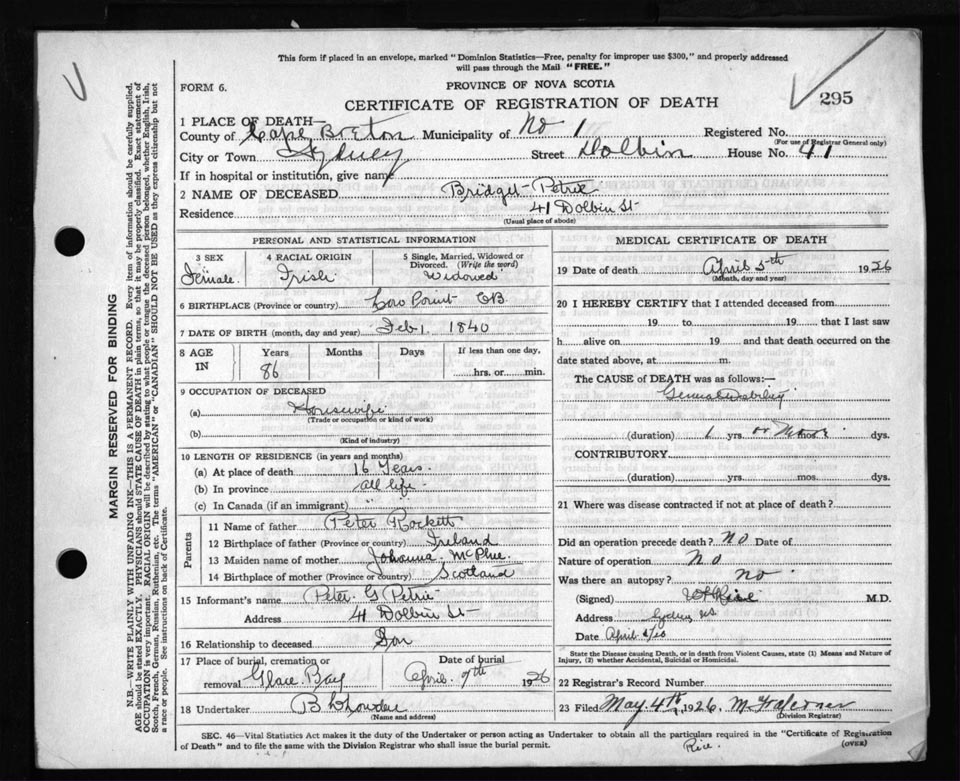 This form if placed in an envelope, marked "Dominion Statistics—Free, penalty for improper use $300," and properly addressed
will pass through the Mail "FREE."
FORM 6.
PROVINCE OF NOVA SCOTIA
CERTIFICATE OF REGISTRATION OF DEATH
295
1 PLACE OF DEATH—
County of Cape Breton Municipality of No 1 Registered No.
(For use of Registrar General only)
City or Town Sydney Street Dolbin House No. 41
If in hospital or institution, give name
2 NAME OF DECEASED Bridget Petrie
Residence 41 Dolbin St
(Usual place of abode)
PERSONAL AND STATISTICAL INFORMATION
3 SEX
Female
4 RACIAL ORIGIN
Irish
5 Single, Married, Widowed or
Divorced. (Write the word)
Widowed
6 BIRTHPLACE (Province or country) Low Point CB
7 DATE OF BIRTH (month, day and year) Feb 1 1840
8 AGE
IN
Years
86
Months
Days
If less than one day,
hrs. or min.
9 OCCUPATION OF DECEASED
(a) Housewife
(Trade or occupation or kind of work)
(b)
(Kind of industry)
10 LENGTH OF RESIDENCE (in years and months)
(a) At place of death 16 Years.
(b) In province all life
(c) In Canada (if an immigrant) "
Parents
11 Name of father Peter Rockett
12 Birthplace of father (Province or country) Ireland
13 Maiden name of mother Johanna McPhee
14 Birthplace of mother (Province or country) Scotland
15 Informant's name Peter G Petrie
Address 41 Dolbin St
16 Relationship to deceased Son
17 Place of burial, cremation or
removal Glace Bay
Date of burial
April 7th 1926
18 Undertaker
(Name and address)
MEDICAL CERTIFICATE OF DEATH
19 Date of death April 5th 1926
(Month, day and year)
20 I HEREBY CERTIFY that I attended deceased from
19 to 19 that I last saw
h alive on 19 and that death occurred on the
date stated above, at m.
The CAUSE of DEATH was as follows:—
General Debility
(duration) 1 yrs. or more mos. dys.
CONTRIBUTORY
(duration) yrs. mos. dys.
21 Where was disease contracted if not at place of death?
Did an operation precede death? No Date of
Nature of operation No
Was there an autopsy? no
(Signed) M.D.
Address Sydney NS
Date April
State the Disease causing Death, or in death from Violent Causes, state (1) Means and Nature of
Injury, (2) whether Accidental, Suicidal or Homicidal.
22 Registrar's Record Number
23 Filed May 4th, 1926.
(Division Registrar)
SEC. 46—Vital Statistics Act makes it the duty of the Undertaker or person acting as Undertaker to obtain all the particulars required in the "Certificate of Registration
of Death" and to file the same with the Division Registrar who shall issue the burial permit.
Rice.
(OVER)
MARGIN RESERVED FOR BINDING
N.B.—WRITE PLAINLY WITH UNFADING INK—THIS IS A PERMANENT RECORD. Every item of information should be carefully supplied.
AGE should be stated EXACTLY. PHYSICIANS should STATE CAUSE OF DEATH in plain terms, so that it may be properly classified. Exact statement of
OCCUPATION is very important. RACIAL ORIGIN will be described by stating to what people or tongue the deceased person belonged, whether English, Irish,
Scotch, French, German, Russian, Ruthenian, etc. The terms "AMERICAN" or "CANADIAN" SHOULD NOT BE USED as they express citizenship but not
a race or people. See instructions on back of Certificate.